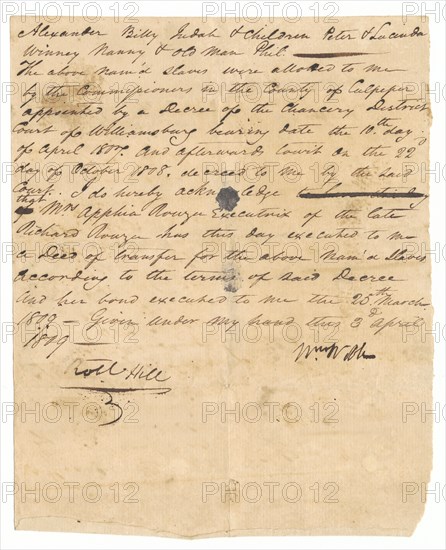 Alexander Billy Judah & Children Peter & Lucinda
Winney Nanny & old man Phil
The above nam'd slaves were allotted to me
by the Commissioners in the County of Culpeper
appointed by a Decree of the Chancery District
Court of Williamsburg bearing date the 10th day
of April 1807. And afterwards Court on the 22d
day of October 1808, decreed to me by the said
Court. I do hereby acknowledge
that Mrs Apphia Rouzee Executrix of the late
Richard Rouzee has this day executed to me
a Deed of transfer for the above nam'd slaves
according to the terms of said Decree
and her bond executed to me the 25th March
1809 — Given under my hand this 3d April
1809
Wm Webb
Hill
PHOTO 12